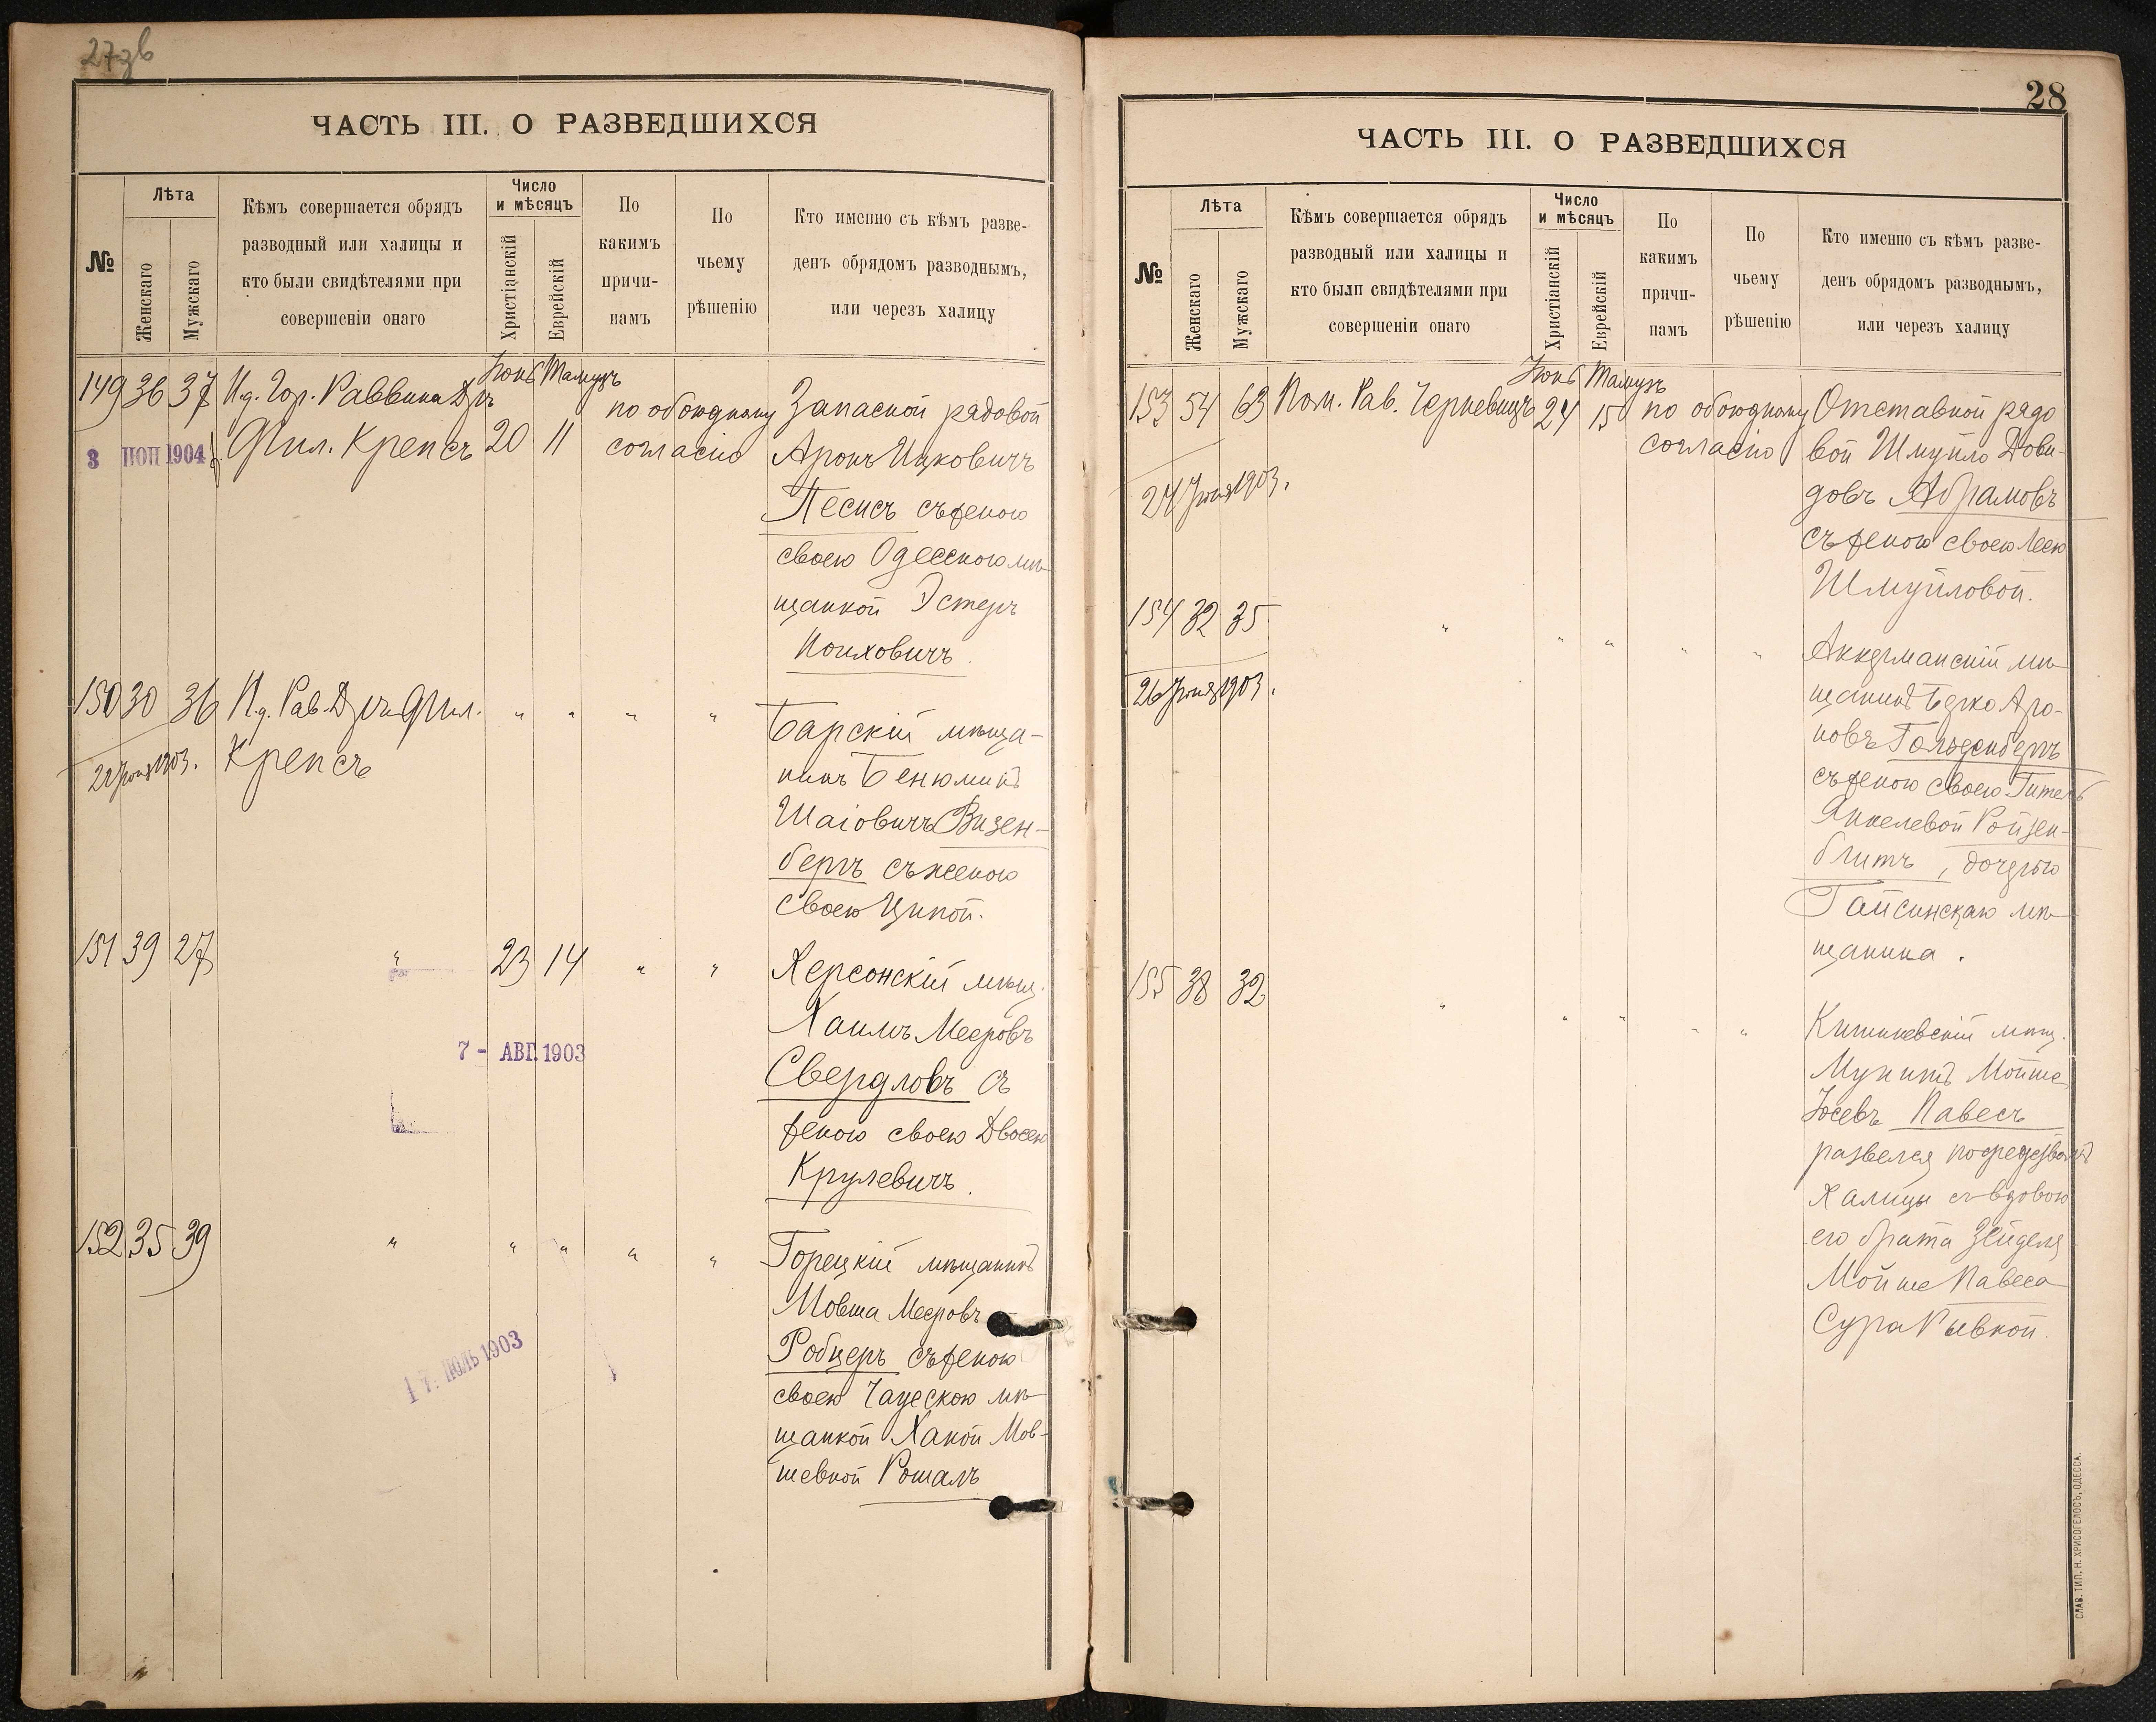 27зв
ЧАСТЬ III. О РАЗВЕДШИХСЯ
№
Лѣта
Женскаго
Мужскаго
Кѣмъ совершается обрядъ
разводный или халицы и
кто были свидѣтелями при
совершеніи онаго
Число
и мѣсяцъ
Христіанскій
Еврейскій
По
какимъ
причи-
намъ
По
чьему
рѣшенію
Кто именно съ кѣмъ разве-
денъ обрядомъ разводнымъ,
или черезъ халицу
149 36 37 И.д. Гор. Раввина Д-ръ
Фил. Крепсъ
3 1904
Іюнь Тамузъ
20 11
по обоюдному
согласію
Запасной рядовой
Аронъ Ицковичъ
Песисъ съ женою
своею Одесскою мѣ-
щанкой Эстеръ
150 30 36 И.д. Рав. Д-ръ Фил.
Крепсъ
1903.
" " " "
Барскій мѣща-
нинъ Бенюминъ
Шаіовичъ Визен-
бергъ съ женою
своею Ципой.
151 39 27 " 23 14 " "
7 - АВГ. 1903
Херсонскій мѣщ.
Хаимъ Мееровъ
Свердловъ съ
женою своею Двосею
Крулевичъ.
152 35 39 " " " " "
17 ІЮЛЬ 1903
Горецкій мѣщанинъ
Мовша Мееровъ
Робцеръ съ женою
своею Чаусскою мѣ-
щанкой Ханой Мов-
шевной Рошалъ
28
ЧАСТЬ III. О РАЗВЕДШИХСЯ
№
Лѣта
Женскаго
Мужскаго
Кѣмъ совершается обрядъ
разводный или халицы и
кто были свидѣтелями при
совершеніи онаго
Число
и мѣсяцъ
Христіанскій
Еврейскій
По
какимъ
причи-
намъ
По
чьему
рѣшенію
Кто именно съ кѣмъ разве-
денъ обрядомъ разводнымъ,
или черезъ халицу
153 54 63 Пом. Рав. Черневицъ
24 Іюня 1903.
Іюнь Тамузъ
24 15
по обоюдному
согласію
Отставной рядо
вой Шмуйло Дови-
довъ Абрамовъ
съ женою своею Леею
Шмуйловой.
154 32 35
26 Іюня 1903.
" " " " "
Аккерманскій мѣ-
щанинъ Берко Аро-
новъ Гольденбергъ
съ женою своею Гитель
Янкелевой Ройзен-
блитъ, дочерью
Гайсинскаго мѣ-
щанина.
155 38 32
" " " " "
Кишиневскій мѣщ.
Мойше
Іосевъ Павесъ
развелся посредствомъ
халицы съ вдовою
его брата Зейделя
Мойше Павеса
Сура Рывкой.
СЛАВ. ТИП. Н. ХРИСОГЕЛОСЪ, ОДЕССА.